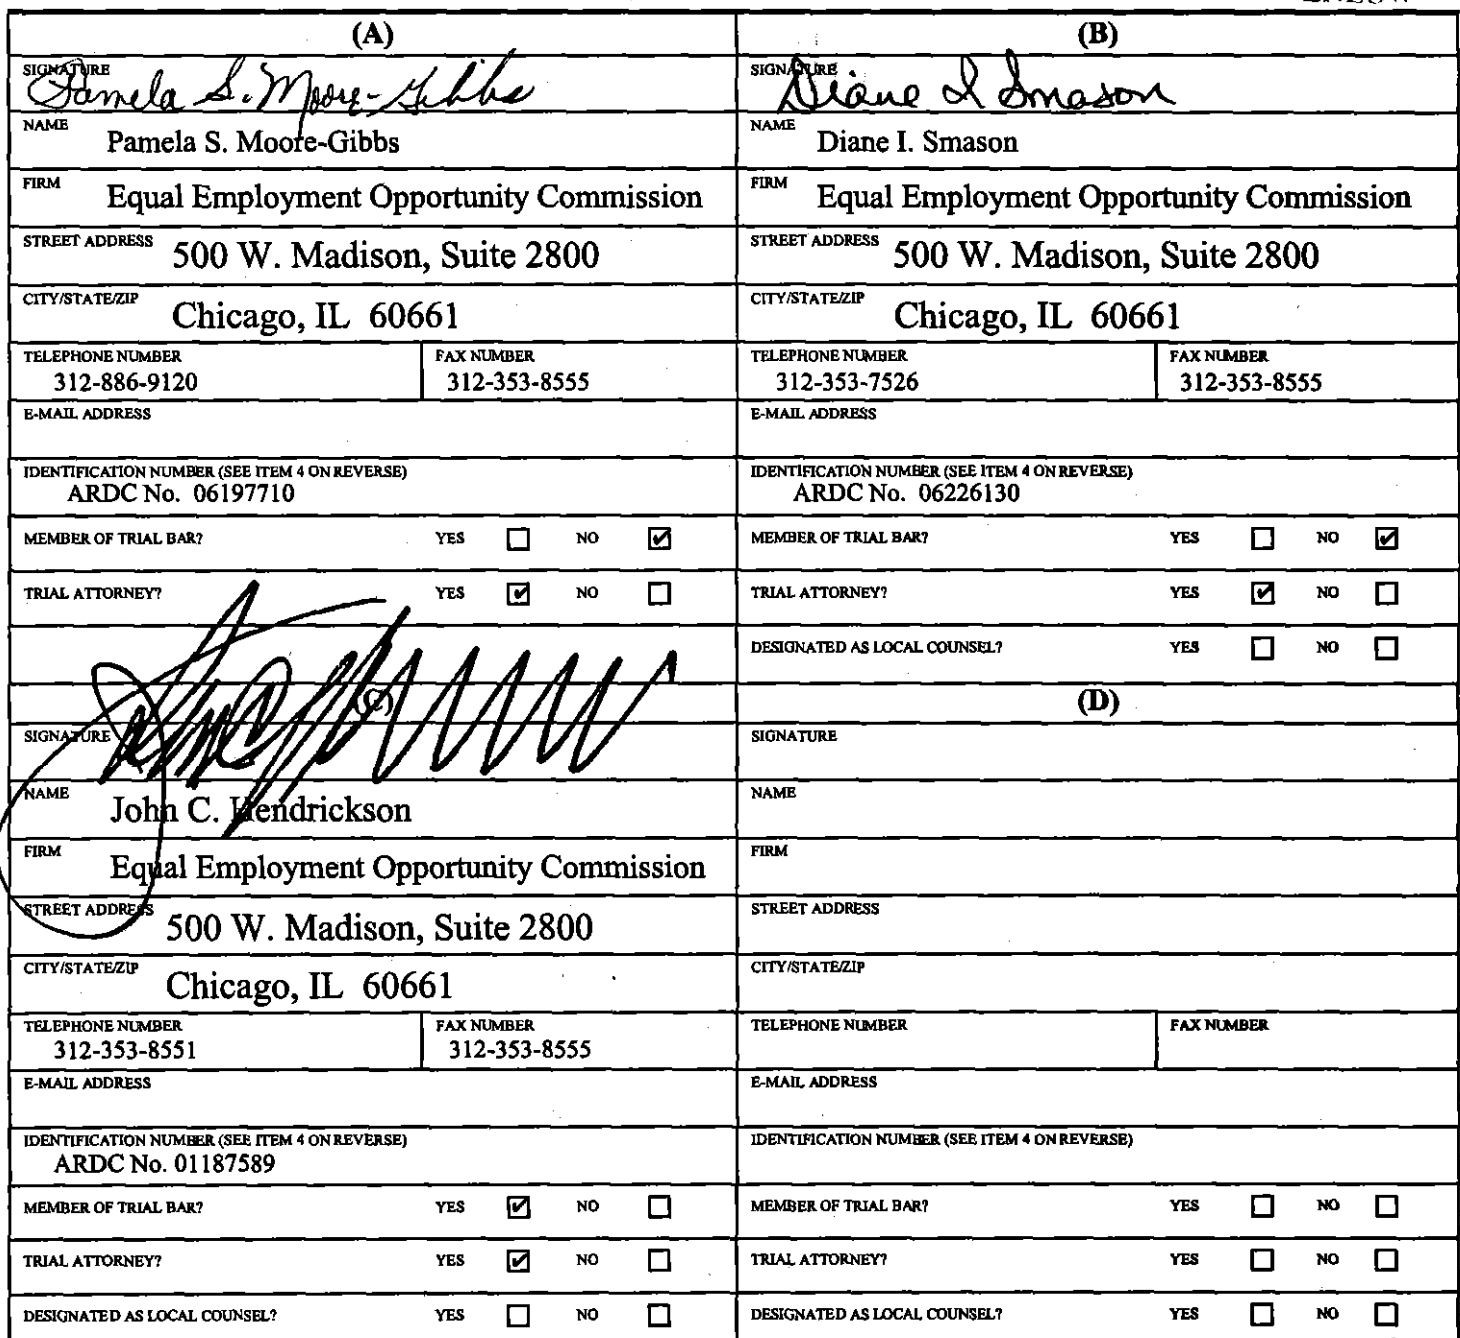 (A)
SIGNATURE
Pamela S. Moore-Gibbs
NAME
Pamela S. Moore-Gibbs
FIRM Equal Employment Opportunity Commission
STREET ADDRESS 500 W. Madison, Suite 2800
CITY/STATE/ZIP Chicago, IL 60661
TELEPHONE NUMBER
312-886-9120
FAX NUMBER
312-353-8555
E-MAIL ADDRESS
IDENTIFICATION NUMBER (SEE ITEM 4 ON REVERSE)
ARDC No. 06197710
MEMBER OF TRIAL BAR? YES ☐ NO ☑
TRIAL ATTORNEY? YES ☑ NO ☐
(B)
SIGNATURE
Diane I Smason
NAME
Diane I. Smason
FIRM Equal Employment Opportunity Commission
STREET ADDRESS 500 W. Madison, Suite 2800
CITY/STATE/ZIP Chicago, IL 60661
TELEPHONE NUMBER
312-353-7526
FAX NUMBER
312-353-8555
E-MAIL ADDRESS
IDENTIFICATION NUMBER (SEE ITEM 4 ON REVERSE)
ARDC No. 06226130
MEMBER OF TRIAL BAR? YES ☐ NO ☑
TRIAL ATTORNEY? YES ☑ NO ☐
DESIGNATED AS LOCAL COUNSEL? YES ☐ NO ☐
(C)
SIGNATURE
NAME
John C. Hendrickson
FIRM
Equal Employment Opportunity Commission
STREET ADDRESS 500 W. Madison, Suite 2800
CITY/STATE/ZIP Chicago, IL 60661
TELEPHONE NUMBER
312-353-8551
FAX NUMBER
312-353-8555
E-MAIL ADDRESS
IDENTIFICATION NUMBER (SEE ITEM 4 ON REVERSE)
ARDC No. 01187589
MEMBER OF TRIAL BAR? YES ☑ NO ☐
TRIAL ATTORNEY? YES ☑ NO ☐
DESIGNATED AS LOCAL COUNSEL? YES ☐ NO ☐
(D)
SIGNATURE
NAME
FIRM
STREET ADDRESS
CITY/STATE/ZIP
TELEPHONE NUMBER
FAX NUMBER
E-MAIL ADDRESS
IDENTIFICATION NUMBER (SEE ITEM 4 ON REVERSE)
MEMBER OF TRIAL BAR? YES ☐ NO ☐
TRIAL ATTORNEY? YES ☐ NO ☐
DESIGNATED AS LOCAL COUNSEL? YES ☐ NO ☐